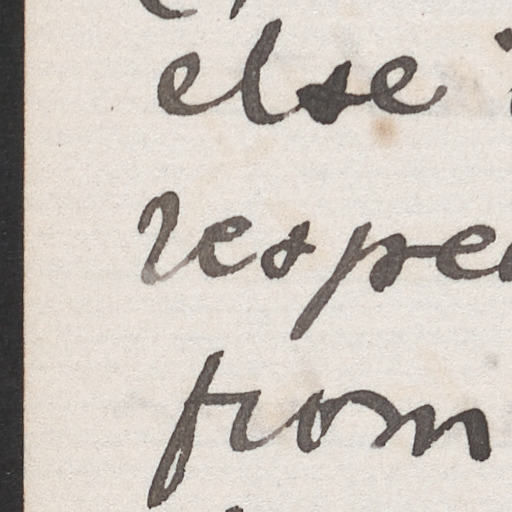 else
respe
from